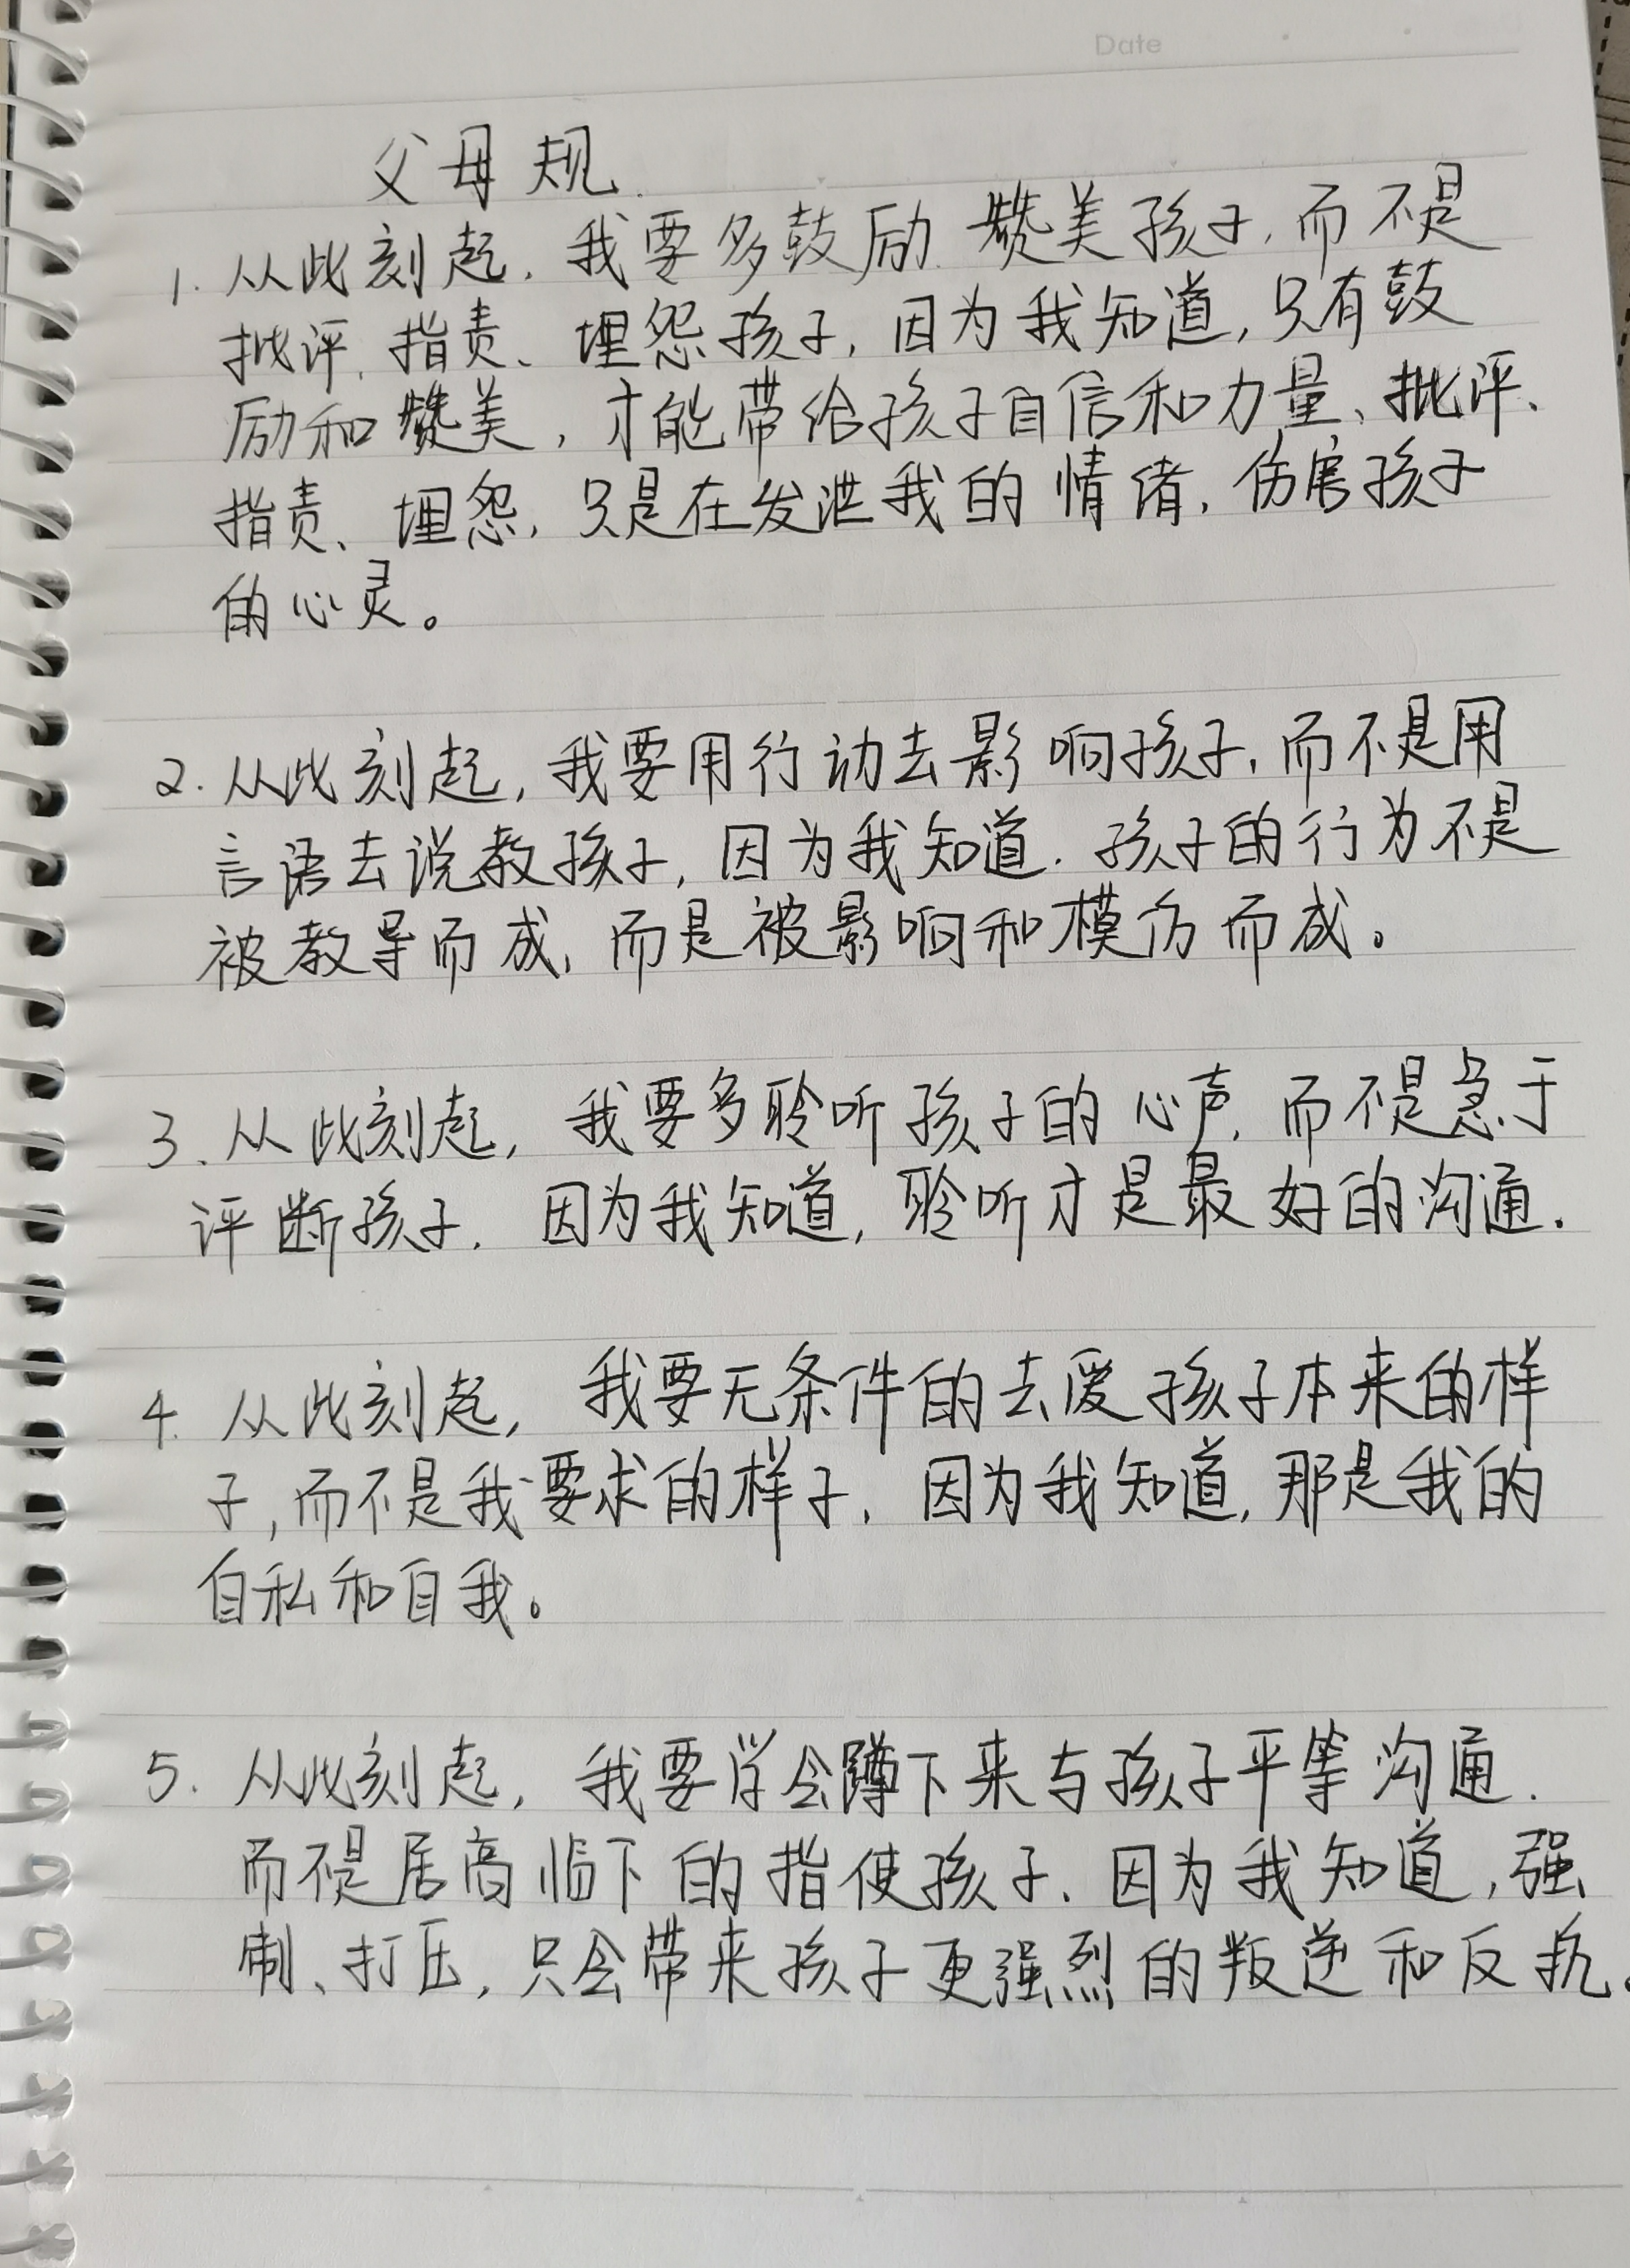 Date
父母规
1. 从此刻起，我要多鼓励、赞美孩子，而不是
批评、指责、埋怨孩子，因为我知道，只有鼓
励和赞美，才能带给孩子自信和力量、批评、
指责、埋怨，只是在发泄我的情绪，伤害孩子
的心灵。
2. 从此刻起，我要用行动去影响孩子，而不是用
言语去说教孩子，因为我知道．孩子的行为不是
被教导而成，而是被影响和模仿而成。
3、从此刻起，我要多聆听孩子的心声，而不是急于
评断孩子．因为我知道，聆听才是最好的沟通．
4. 从此刻起，我要无条件的去爱孩子本来的样
子，而不是我要求的样子．因为我知道，那是我的
自私和自我。
5. 从此刻起，我要学会蹲下来与孩子平等沟通．
而不是居高临下的指使孩子、因为我知道，强
制、打压，只会带来孩子更强烈的叛逆和反抗。